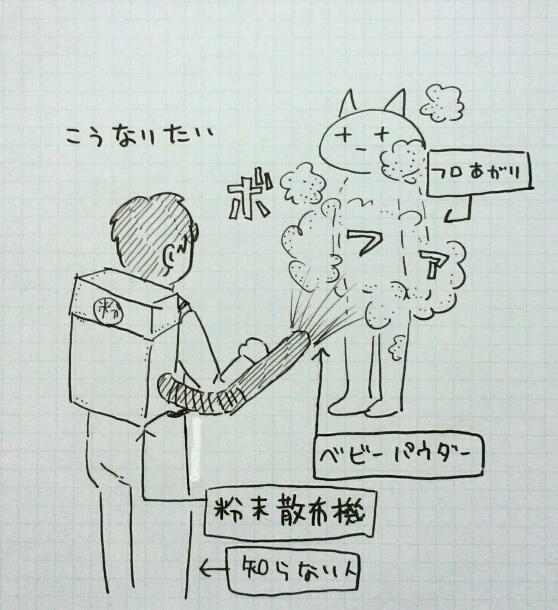 こうなりたい
ボファ
フロあがり
粉
ベビーパウダー
粉末散布機
知らない人